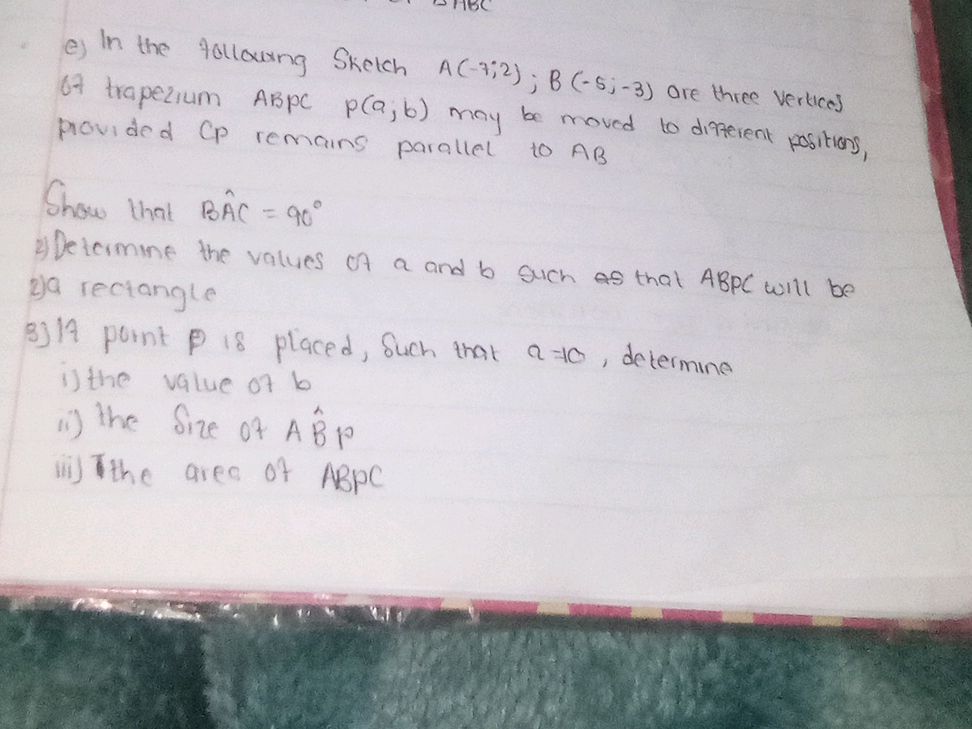 ABC
e) In the following Sketch A(-7;2); B(-5;-3) are three vertices
of trapezium ABPC P(a;b) may be moved to different positions,
provided CP remains parallel to AB
Show that BÂC = 90°
2) Determine the values of a and b such as that ABPC will be
2) a rectangle
3) If point P is placed, Such that a=10, determine
i) the value of b
ii) the Size of A B̂ P
iii) the area of ABPC